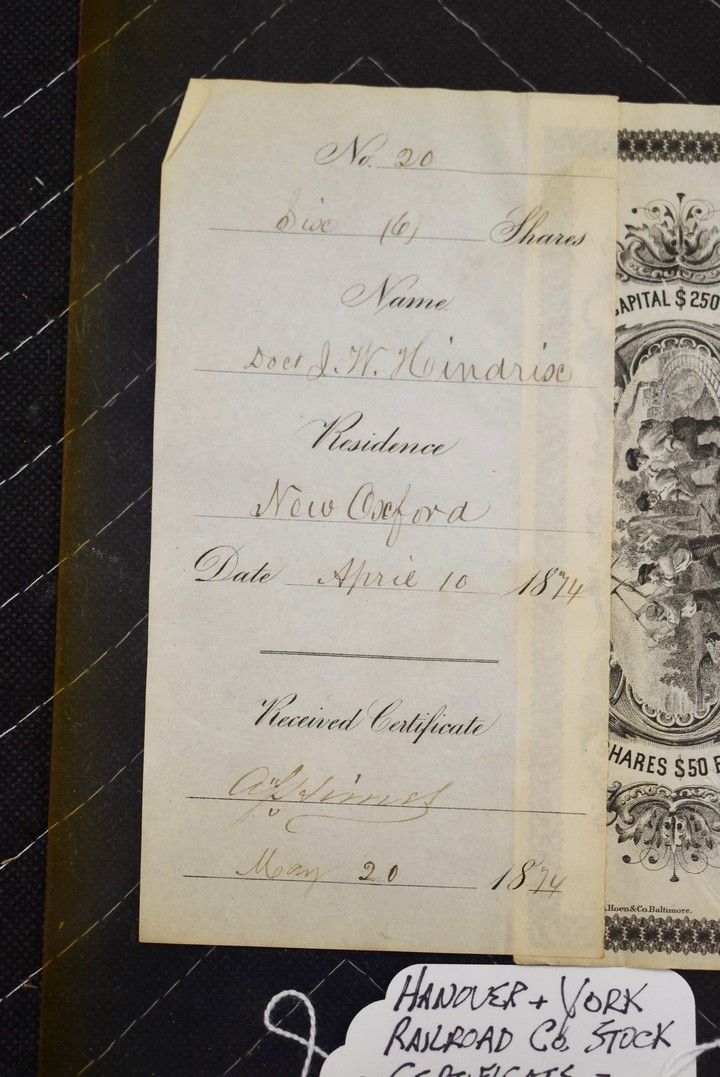 No. 20
Six (6) Shares
Name
Doct J. W. Hindrix
Residence
New Oxford
Date April 10 1874
Received Certificate
May 20 1874
CAPITAL $250
SHARES $50
A.Hoen&Co.Baltimore.
HANOVER + YORK
RAILROAD Co. STOCK
CERTIFICATE -